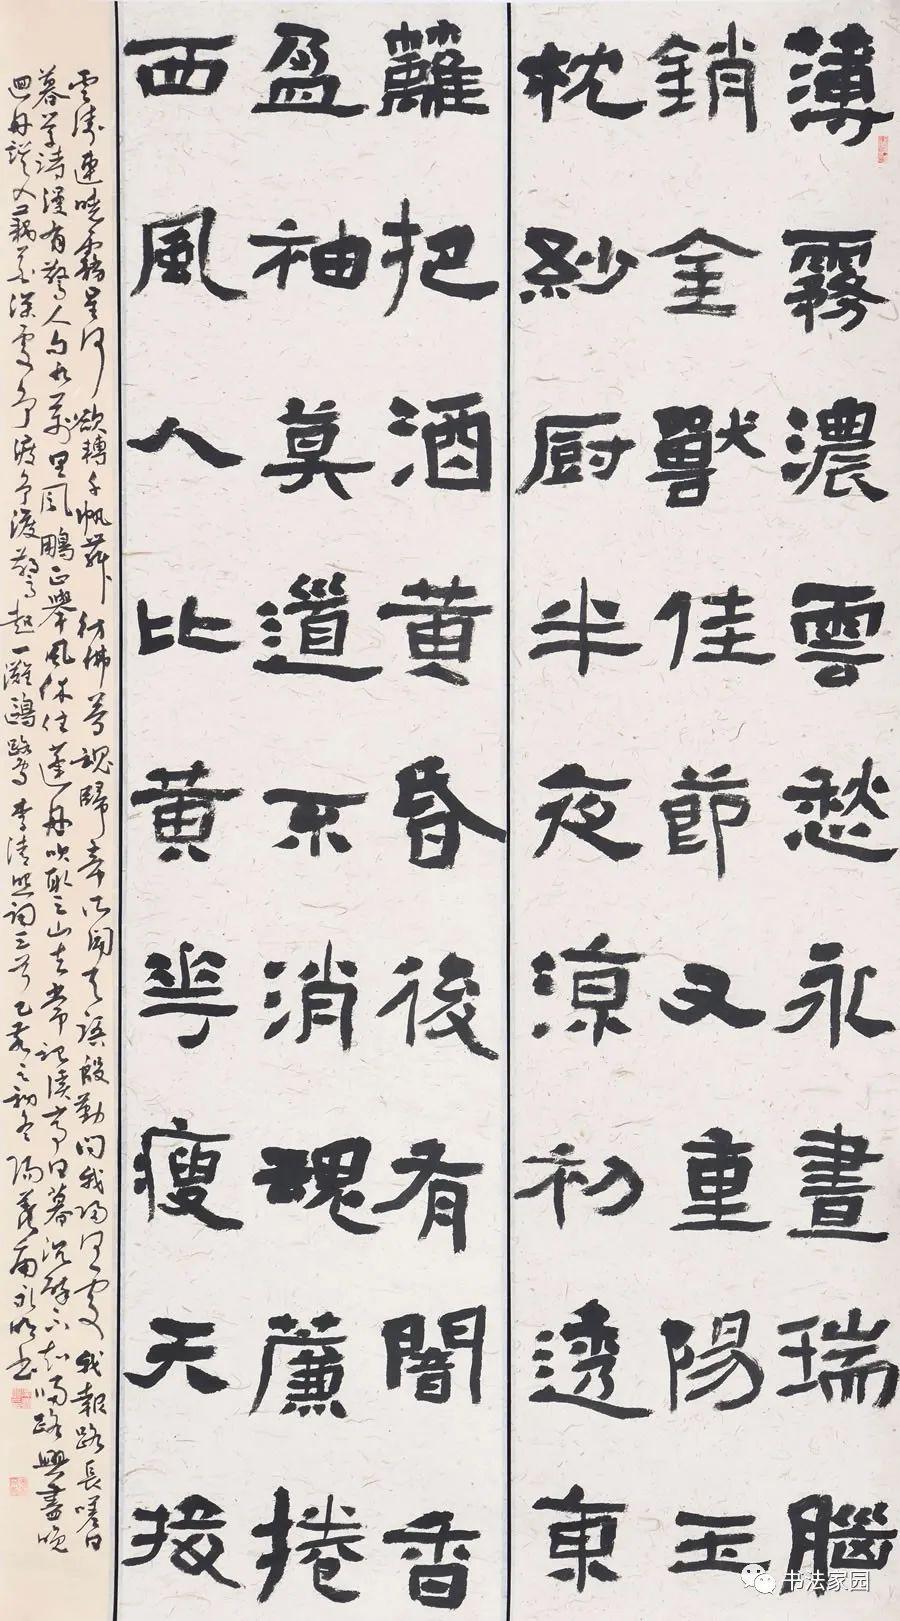 薄霧濃雲愁永晝瑞腦
銷金獸佳節又重陽玉
枕紗厨半夜涼初透東
籬把酒黄昏後有闇香
盈袖莫道不消魂簾捲
西風人比黄華瘦天接
雲濤連曉霧星河欲轉千帆舞彷彿夢魂歸帝所聞天語殷勤問我歸何處我報路長嗟日
暮學詩漫有驚人句九萬里風鵬正舉風休住蓬舟吹取三山去常記溪亭日暮沉醉不知歸路興盡晚
迴舟誤入藕花深處爭渡爭渡驚起一灘鷗鷺 李清照詞三首 己亥之初冬
书法家园